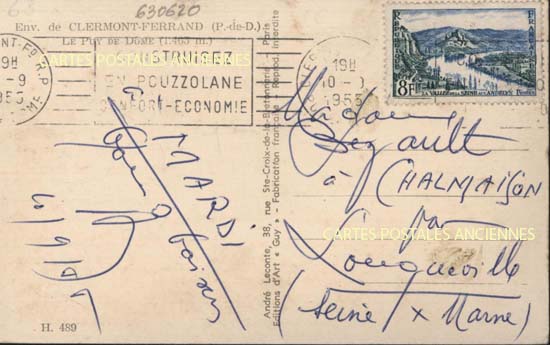 630620
Env. de CLERMONT-FERRAND (P.-de-D.)
LE PUY DE DÔME (1.465 m.)
CONSTRUISEZ
EN POUZZOLANE
CONFORT-ECONOMIE
CARTES POSTALES ANCIENNES
à
MARDI
baisers
H. 489
André Leconte, 38, rue Ste-Croix-de-la-Bretonnerie, Paris
Editions d'Art « Guy » - Fabrication française - Reprod. interdite
19H
10-9
1955
8F
LA VALLÉE DE LA SEINE AUX ANDELYS
Madame
Egault
à CHALMAISON
par
CARTES POSTALES ANCIENNES
Longueville
(Seine x Marne)